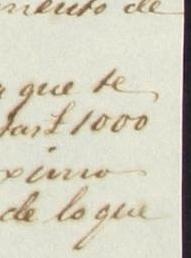 mento de
que te
tar £ 1000
ximo
de lo que